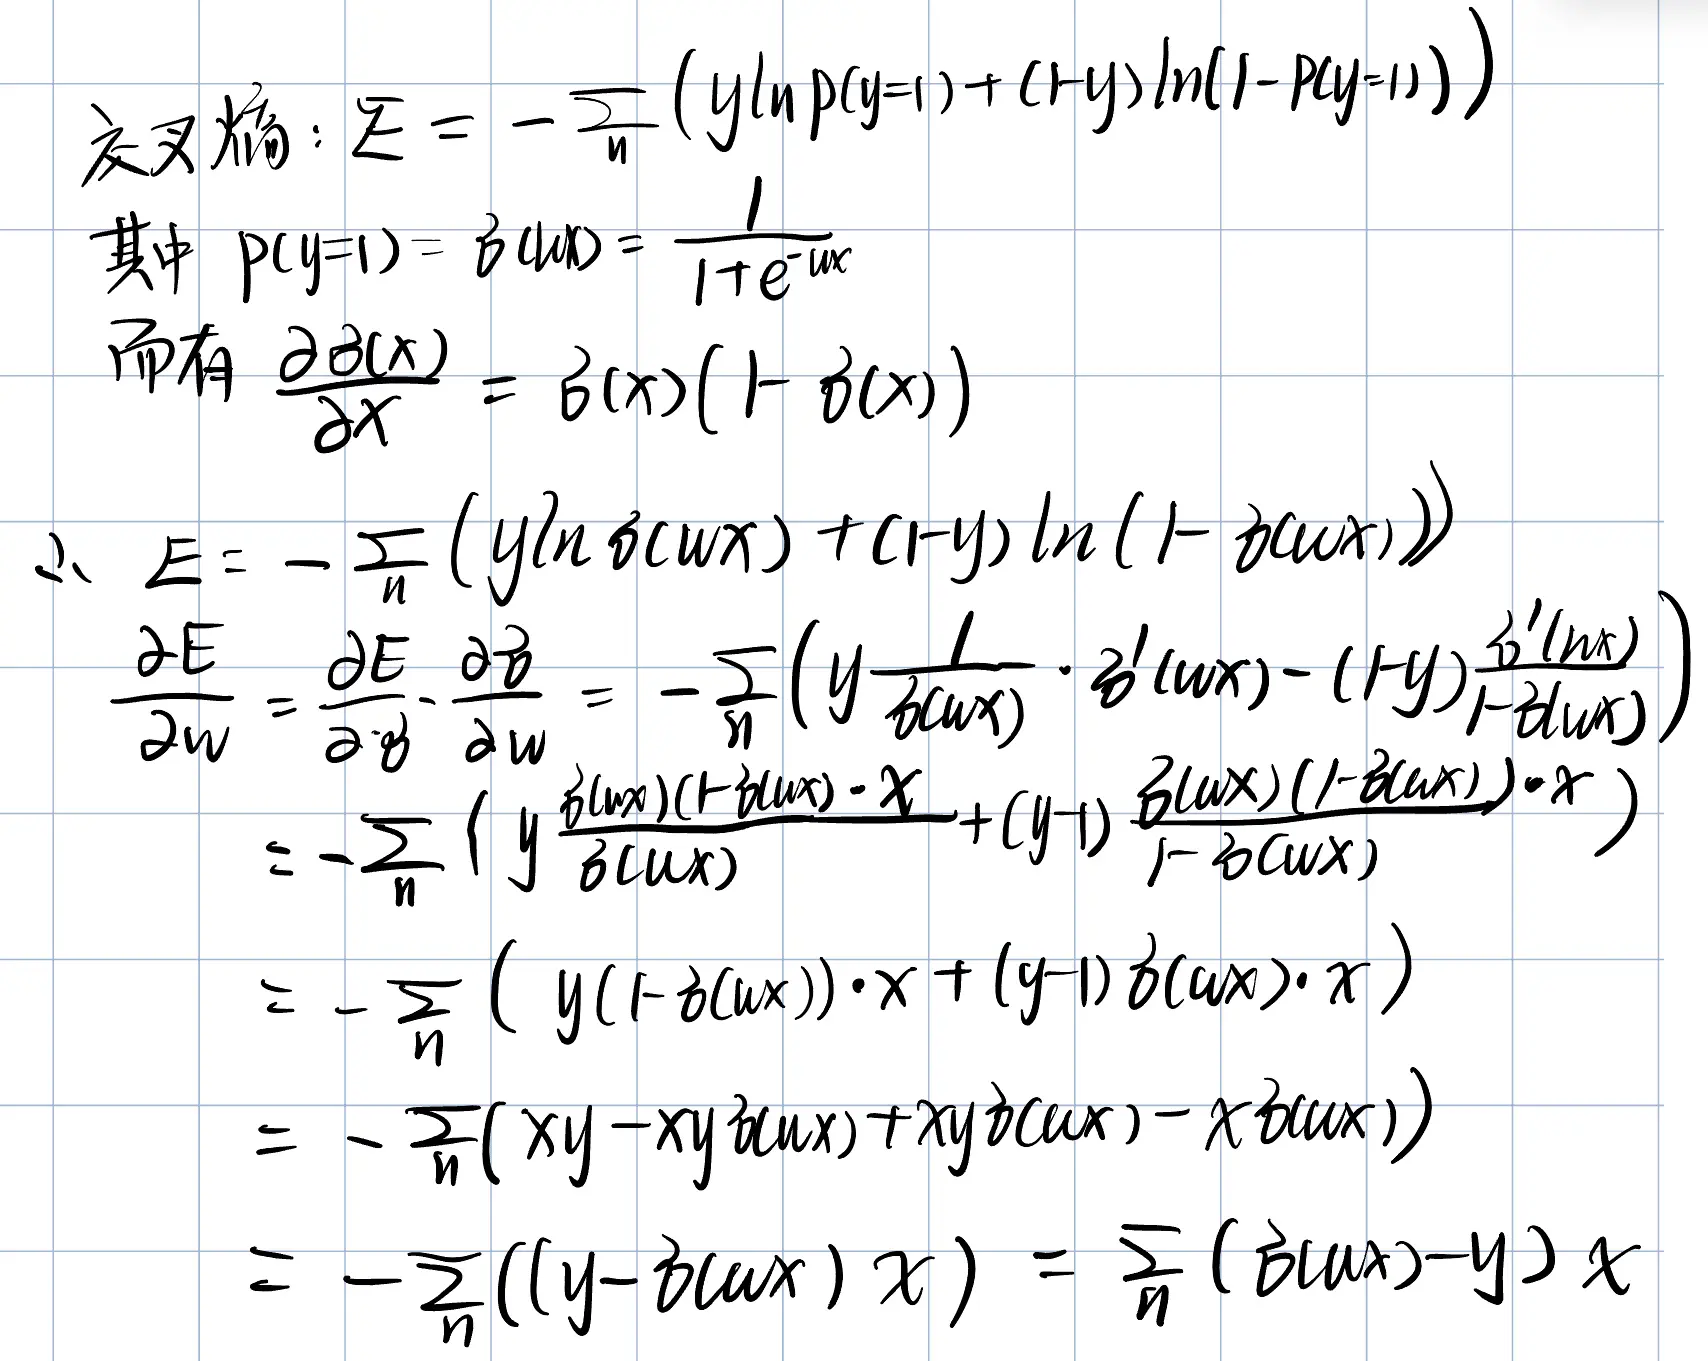 交叉熵: E = -∑_n (y ln p(y=1) + (1-y) ln(1-p(y=1)))
其中 p(y=1) = σ(wx) = 1/(1+e^{-wx})
而有 ∂σ(x)/∂x = σ(x)(1-σ(x))
∴ E = -∑_n (y ln σ(wx) + (1-y) ln(1-σ(wx)))
∂E/∂w = ∂E/∂σ · ∂σ/∂w = -∑_n (y 1/σ(wx) · σ'(wx) - (1-y) σ'(wx)/(1-σ(wx)))
= -∑_n (y σ(wx)(1-σ(wx)·x/σ(wx) + (y-1) σ(wx)(1-σ(wx))·x/(1-σ(wx)))
= -∑_n (y(1-σ(wx))·x + (y-1)σ(wx)·x)
= -∑_n (xy - xyσ(wx) + xyσ(wx) - xσ(wx))
= -∑_n ((y-σ(wx)) x) = ∑_n (σ(wx)-y) x